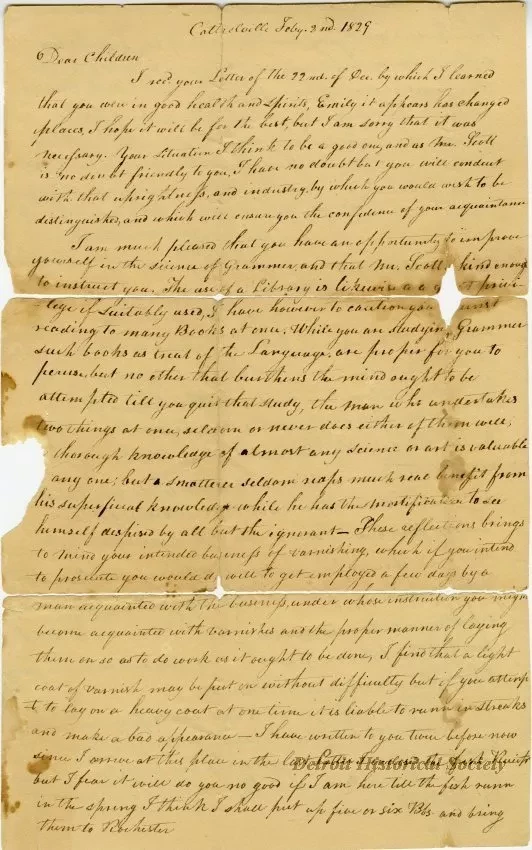 Cattrelville Feby. 2nd. 1829
Dear Children
I recd. your Letter of the 22nd. of Dec. by which I learned
that you were in good health and spirits, Emily it appears has changed
places, I hope it will be for the best, but I am sorry that it was
necessary. Your Situation I think to be a good one, and as Mr. Scott
is no doubt friendly to you, I have no doubt but you will conduct
with that uprightness, and industry, by which you would wish to be
distinguished, and which will ensure you the confidence of your acquaintance
I am much pleased that you have an opportunity to improve
yourself in the science of Grammer, and that Mr. Scott is kind enough
to instruct you. The use of a Library is likewise a privi
lege if Suitably used, I have however to caution you against
reading to many Books at once. While you are studying Grammer
such books as treat of the Language, are proper for you to
peruse, but no other that burthens the mind ought to be
attempted till you quit that study, the man who undertakes
two things at once, seldom or never does either of them well,
thorough knowledge of almost any science or art is valuable
any one; but a smatterer seldom reaps much real benefit from
his superficial knowledge while he has the mortification to see
himself despised by all but the ignorant — These reflections brings
to mind your intended business of varnishing, which if you intend
to prosecute you would do well to get employed a few days by a
man acquainted with the business, under whose instruction you might
become acquainted with varnishes and the proper manner of laying
them on so as to do work as it ought to be done, I find that a light
coat of varnish may be put on without difficulty but if you attemp
t to lay on a heavy coat at one time it is liable to runn in streaks
and make a bad appearance — I have written to you twice before now
since I arrive at this place in the last Letter
but I fear it will do you no good if I am here till the fish runn
in the spring I think I shall put up five or six Bbs. and bring
them to Rochester
Detroit Historical Society